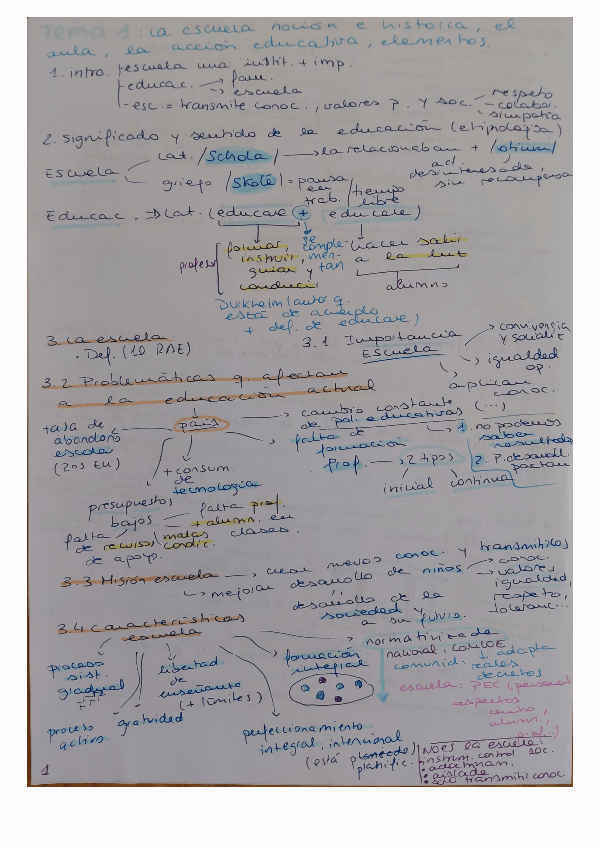 Tema 1: La escuela noción e historia, el
aula, la acción educativa, elementos.
1. intro. escuela una instit. + imp.
educac. → fam.
→ escuela
- esc. = transmite conoc., valores p. y soc.
respeto
colabor.
simpatia
2. Significado y sentido de la educación (etimología)
Escuela
lat. /Schola/ → la relacionaban + /otium/
act. desinteresada,
sin recompensa
griego /Skolé/ = pausa en trab. / tiempo libre
Educac. ⇒ Lat. (educare + educere)
profesor
formar,
instruir,
guiar y
conducir
se comple-
men-
tan
hacer salir
a la luz
alumno
Durkheim (autor q.
está de acuerdo
+ def. de educare)
3. La escuela
· Def. (1D RAE)
3.1 Importancia
Escuela
convivencia
y socializ
igualdad
op.
aplican
conoc.
(...)
3.2 Problemáticas q. afectan
a la educación actual
país
+ tasa de
abandono
escolar
(2os EU)
presupuestos
bajos
falta prof.
+ alumn. en
clases.
falta
de recursos/malas
de apoyo. condic.
+ consum.
de
tecnología
cambio constante
de pol. educativas
1. no podemos
saber
resultados
2. P. desarroll.
pactan
falta de
formación
Prof. → 2 tipos
inicial continua
3.3 Misión escuela → crear nuevos conoc. y transmitirlos
→ mejorar desarrollo de niños
conoc.
valores,
igualdad,
respeto,
toleranc...
desarrollo de la
sociedad y
a su futuro.
3.4 Características
escuela
proceso
sist.
gradual
proceso
activo
gratuidad
libertad
de
enseñante
(+ límites)
perfeccionamiento
integral, intencional
(está
planific.
formación
integral
normativizada
nacional: LOMLOE
comunid: ↓ adapta
reales
decretos
escuela: PEC (personal
aspectos
centro,
alumn.,
prof.)
No es la escuela:
instrum. control soc.
• adoctrinam.
• aislada
• solo transmitir conoc.
1